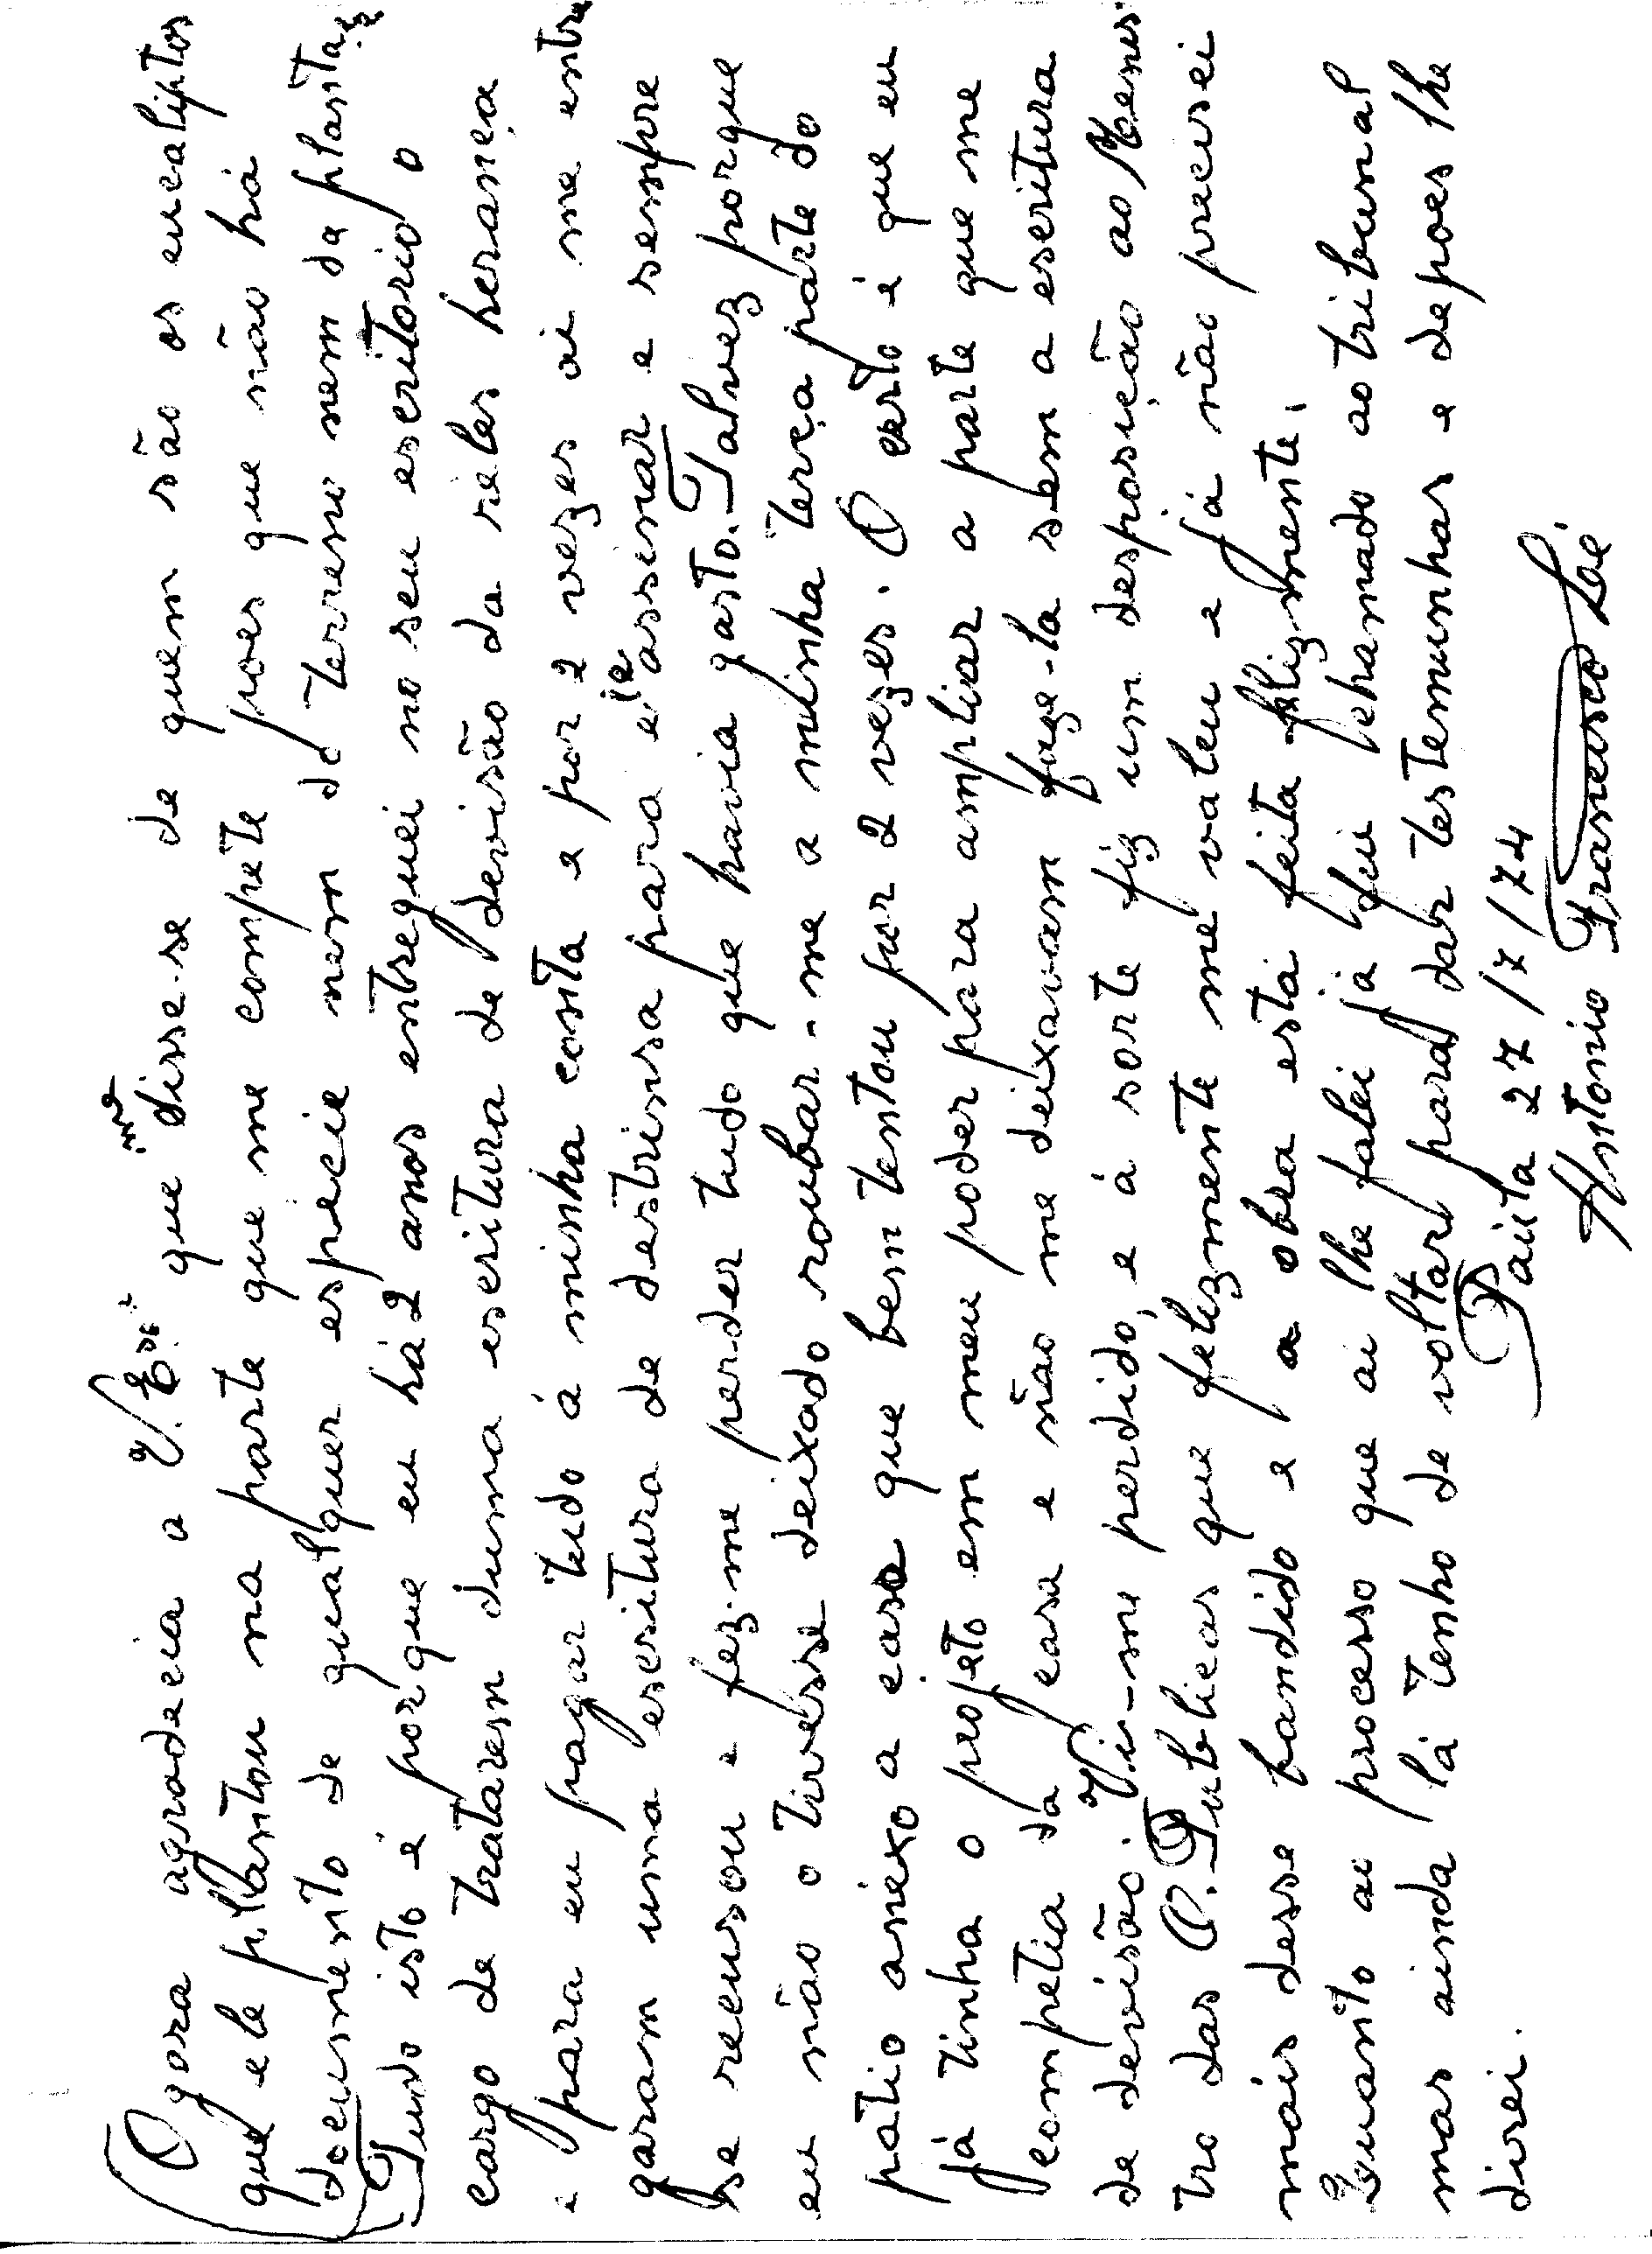 Agora agradecia a V. Exª. que me disse-se de quem são os eucaliptos
que ele pillantou na parte que me compete poes que não há
documento de qualquer especie nem do terreno nem da planta
Tudo isto é porque eu há 2 anos entreguei no seu escritorio o
cargo de tratarem duma escritura de devisão da reles herança
e para eu pagar tudo á minha conta e por 2 vezes ai me entre
garam uma escritura de destrinsa para ele assinar e sempre
se recusou e fez-me perder tudo que havia gasto. Talvez porque
eu não o tivesse deixado roubar-me a minha terça parte do
patio anexo a casa que bem tentou por 2 vezes. O certo é que eu
já tinha o projeto em meu poder para ampliar a parte que me
competia da casa e não me deixavam faze-la sem a escritura
de devisão. Vi-me perdido, e á sorte fiz um desposição ao Menis
tro das O. Publicas que felizmente me valeu e já não precisei
mais desse bandido e a obra está feita felizmente.
Quanto ao proceso que ai lhe falei já fui chamado ao tribunal
mas ainda lá tenho de voltar para dar testemunhas e depoes lhe
direi.
27/7/74
Antonio Francisco